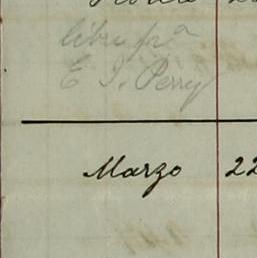 libre pra
E. J. Perry
Marzo 22